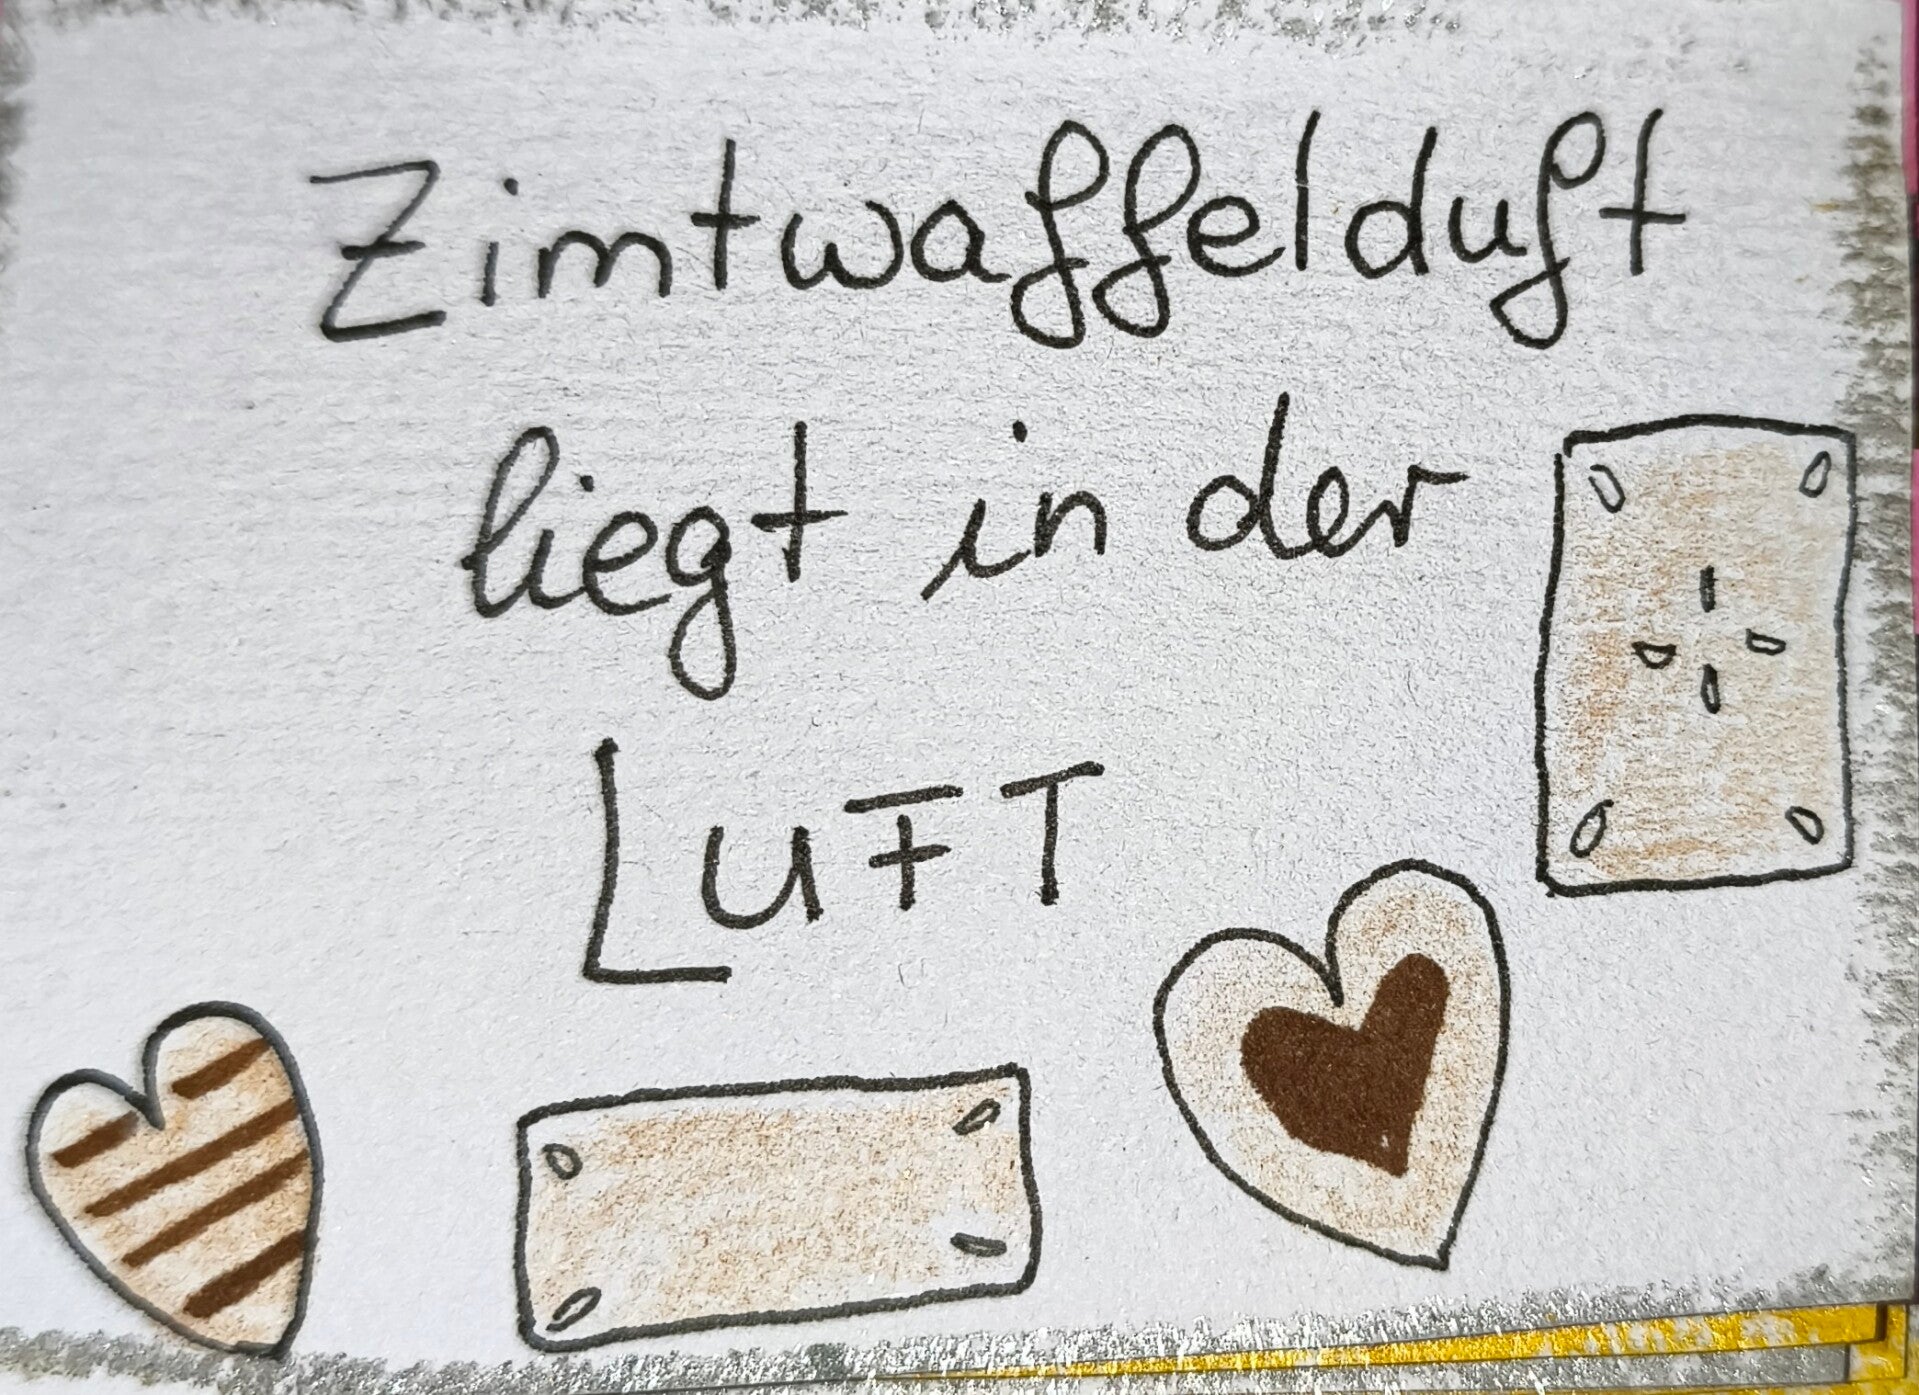 Zimtwaffelduft
liegt in der
LuFT